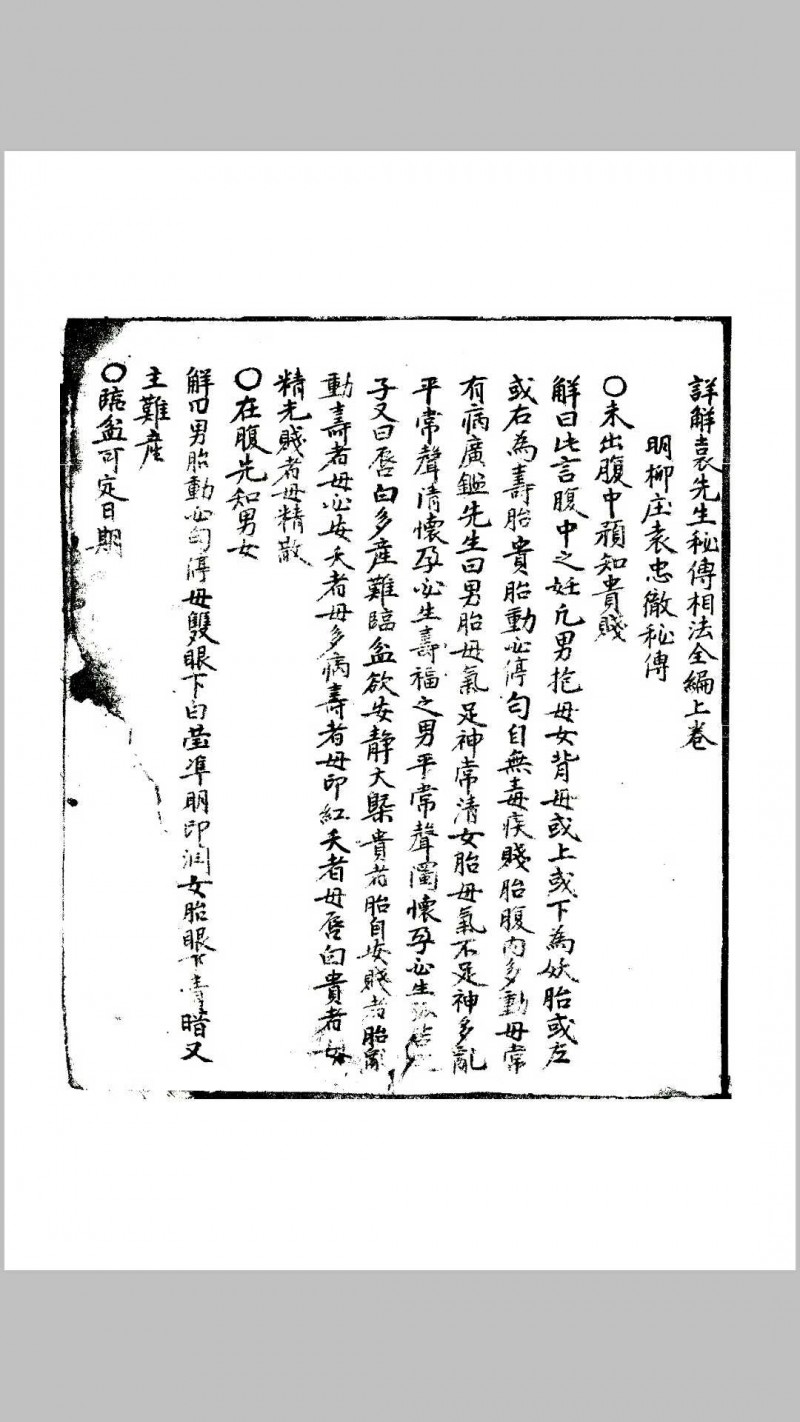 詳解袁先生秘傳相法全編上卷
明柳庄袁忠徹秘傳
〇未出腹中預知貴賤
解曰此言腹中之妊凢男抱母女背母或上或下為妖胎或左
或右為壽胎貴胎動必停匀自無毒疾賤胎腹内多動母常
有病廣鑑先生曰男胎母氣足神常清女胎母氣不足神多亂
平常聲清懷孕必生壽福之男平常聲濁懷孕必生
子又曰唇白多産難臨盆欲安静大槩貴者胎自安賤者胎亂
動壽者母必安夭者母多病壽者母印紅夭者母唇白貴者母
精光賤者母精散
〇在腹先知男女
解曰男胎動必匀停母雙眼下白瑩準明印润女胎眼下青暗又
主難産
〇臨盆可定日期